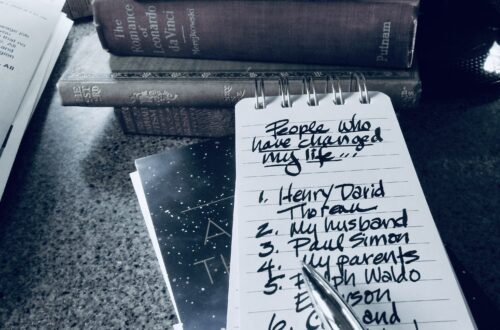 The
Romance
of
Leonardo
da Vinci
Merejkowski
Putnam
People who
have changed
my life...
1. Henry David
Thoreau
2. My husband
3. Paul Simon
4. My parents
5. Ralph Waldo
Emerson
6.
and